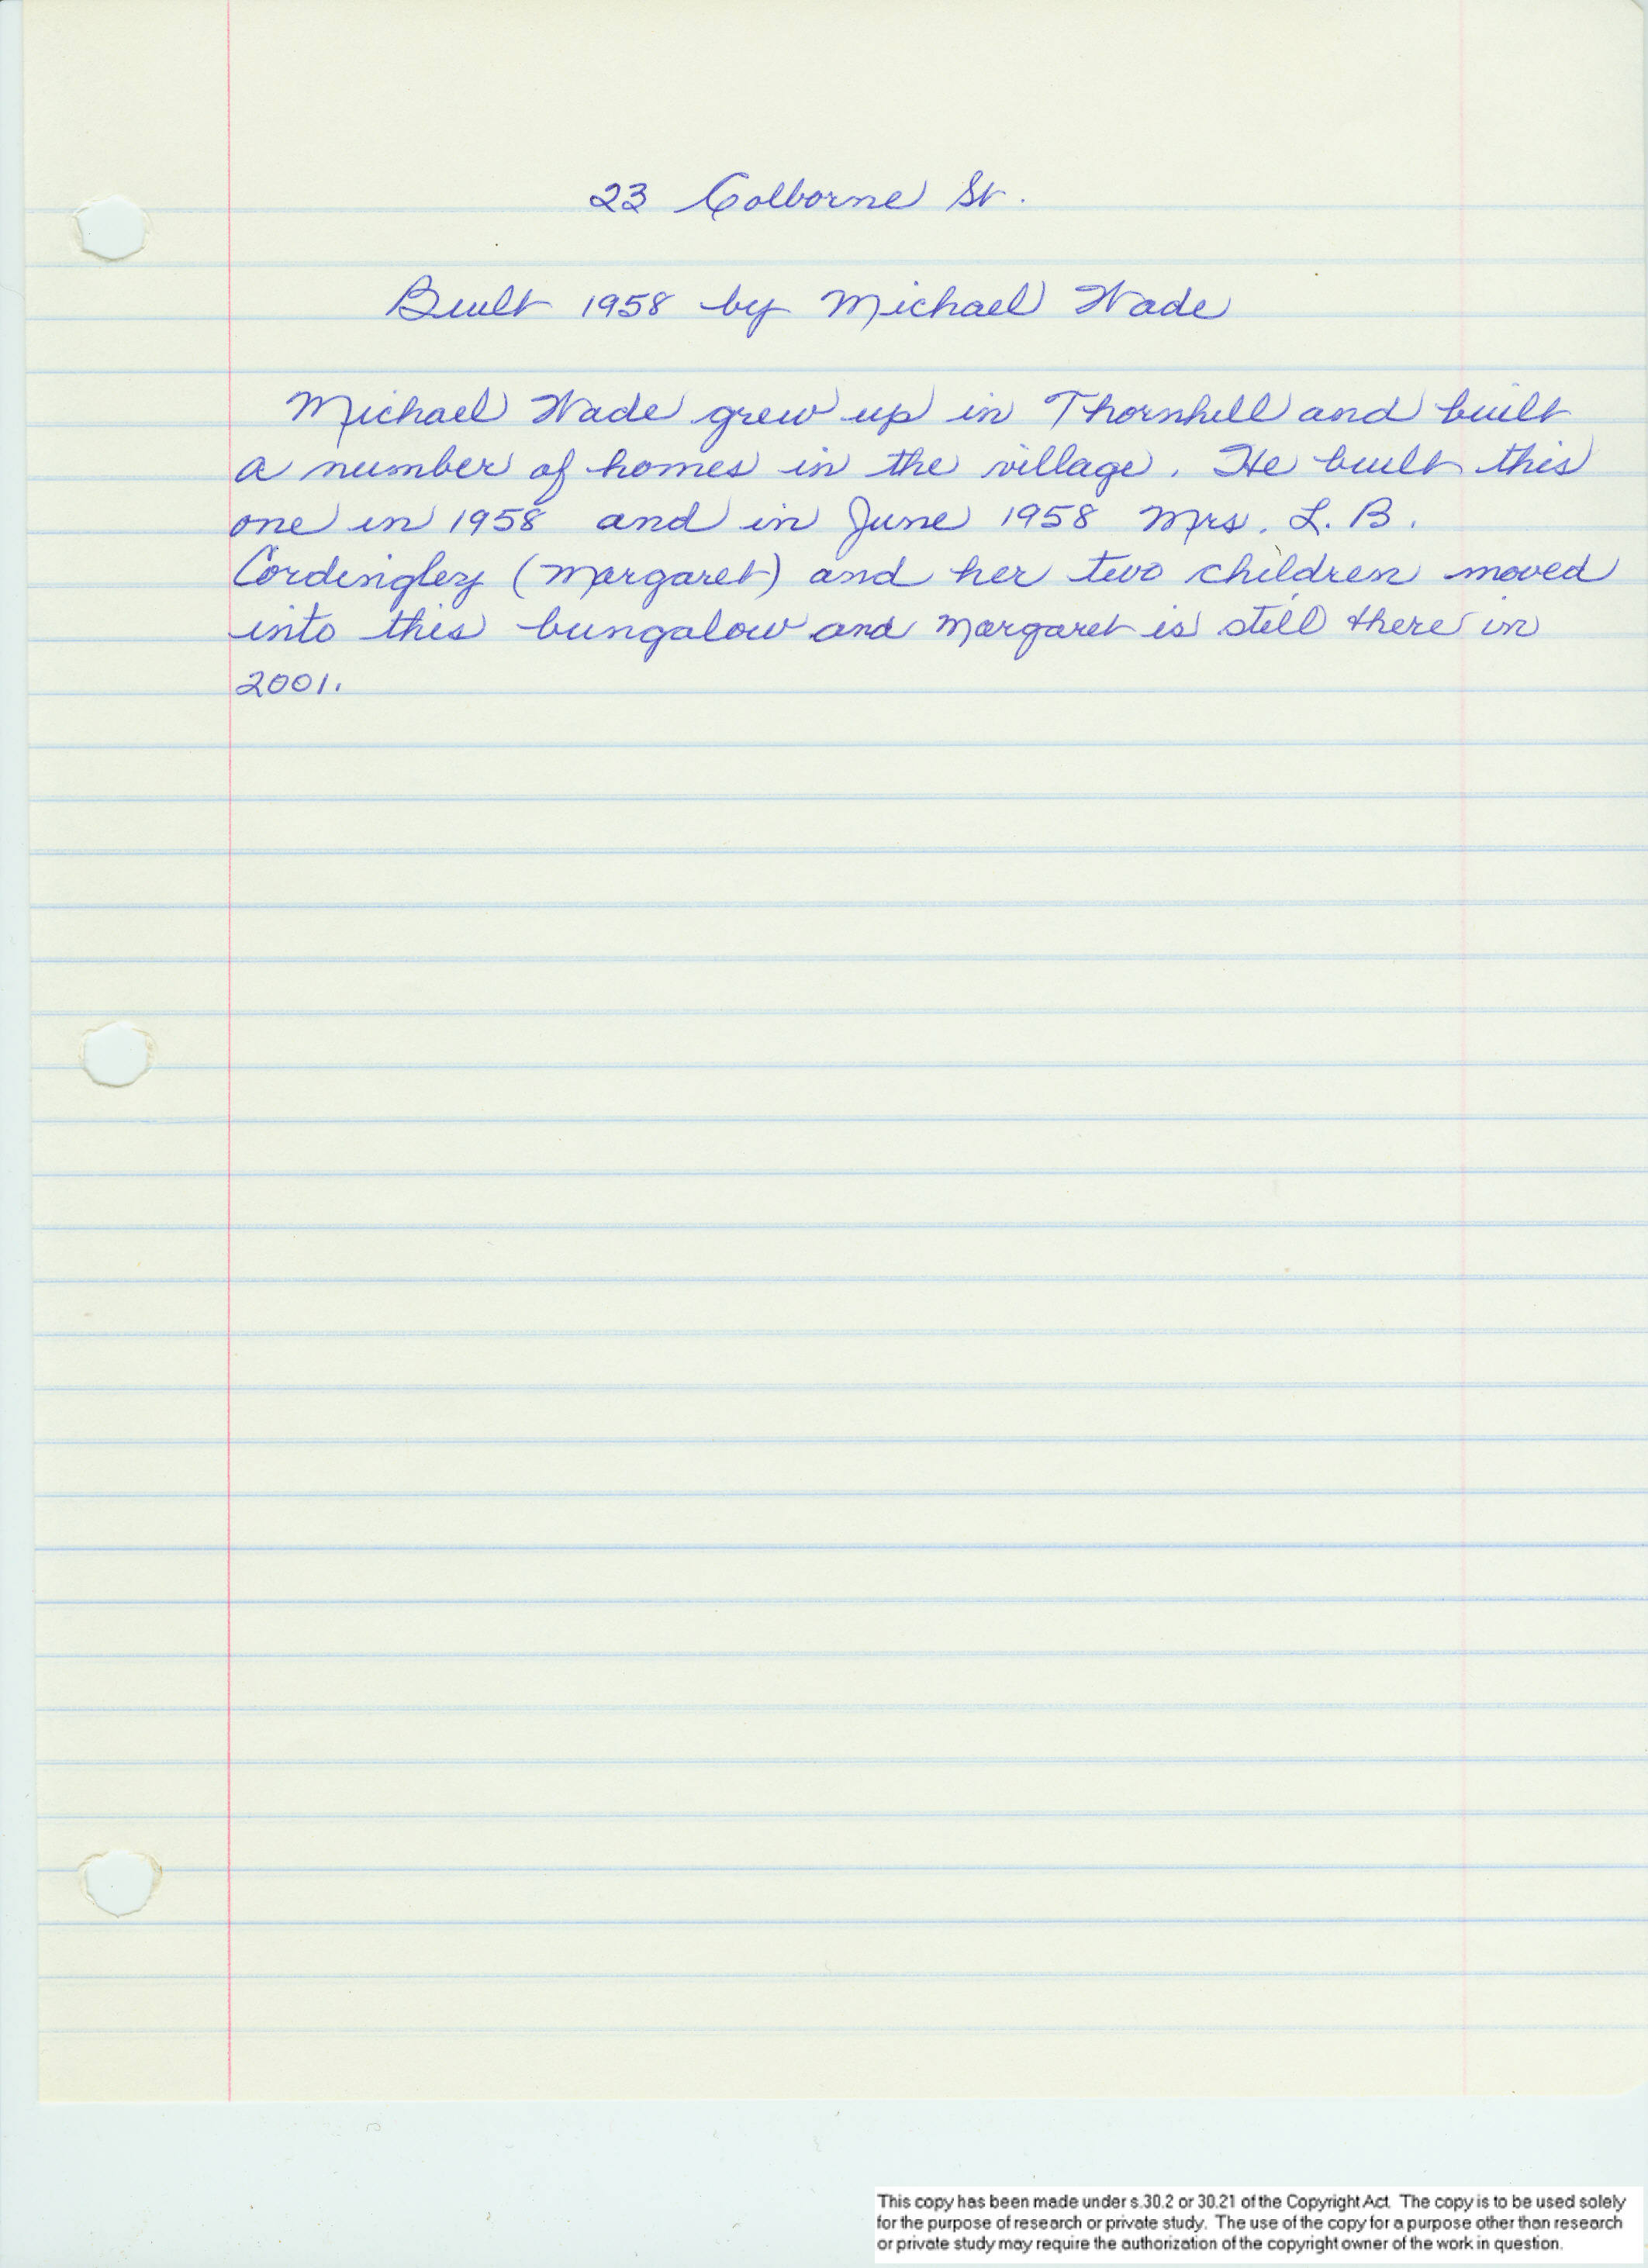 23 Colborne St.
Built 1958 by Michael Wade
Michael Wade grew up in Thornhill and built
a number of homes in the village. He built this
one in 1958 and in June 1958 Mrs. L. B.
Cordingley (Margaret) and her two children moved
into this bungalow and Margaret is still there in
2001.
This copy has been made under s.30.2 or 30.21 of the Copyright Act. The copy is to be used solely
for the purpose of research or private study. The use of the copy for a purpose other than research
or private study may require the authorization of the copyright owner of the work in question.